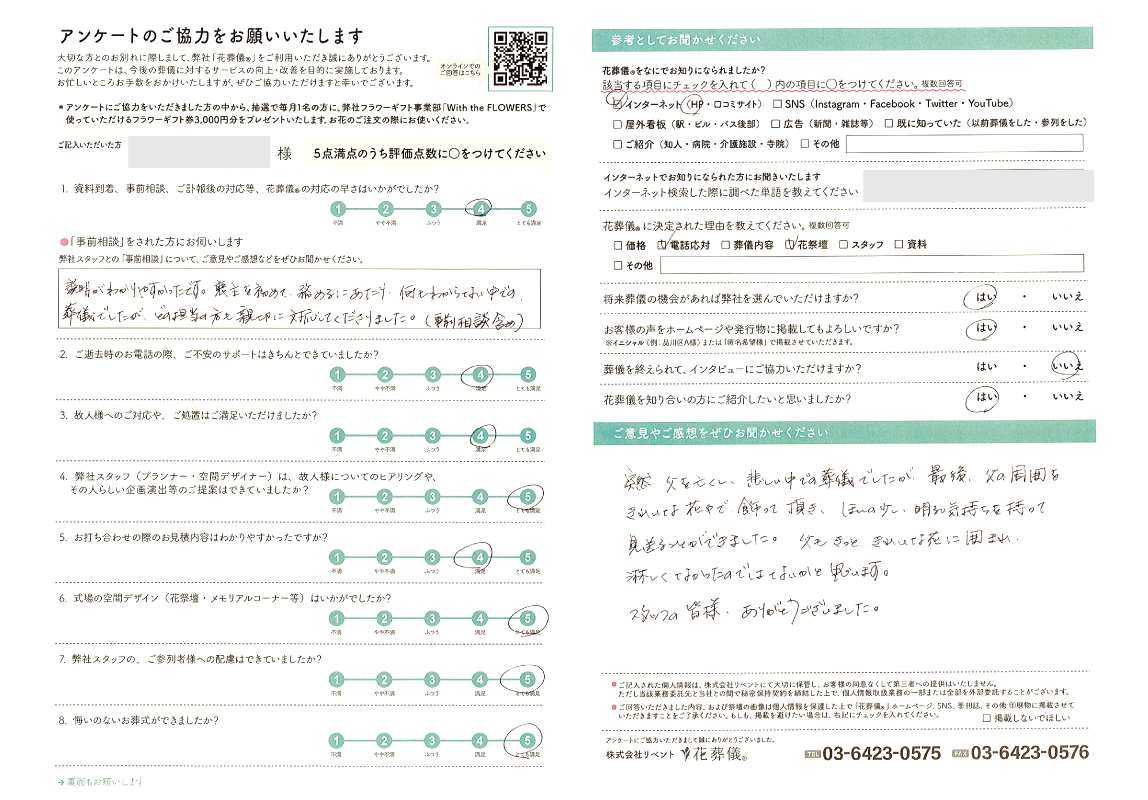 アンケートのご協力をお願いいたします
大切な方とのお別れに際しまして、弊社「花葬儀®」をご利用いただき誠にありがとうございます。
このアンケートは、今後の葬儀に対するサービスの向上・改善を目的に実施しております。
お忙しいところお手数をおかけいたしますが、ぜひご協力いただけますと幸いでございます。
オンラインでの
ご回答はこちら
*アンケートにご協力をいただきました方の中から、抽選で毎月1名の方に、弊社フラワーギフト事業部「With the FLOWERS」で
使っていただけるフラワーギフト券3,000円分をプレゼントいたします。お花のご注文の際にお使いください。
ご記入いただいた方 様 5点満点のうち評価点数に○をつけてください
1. 資料到着、事前相談、ご訃報後の対応等、花葬儀®の対応の早さはいかがでしたか?
1 2 3 4 5
不満 やや不満 ふつう 満足 とても満足
●「事前相談」をされた方にお伺いします
弊社スタッフとの「事前相談」について、ご意見やご感想などをぜひお聞かせください。
説明がわかりやすかったです。喪主を初めて、務めるにあたり、何もわからない中での
葬儀でしたが、どの担当の方も親切に対応してくださりました。(事前相談含め)
2. ご逝去時のお電話の際、ご不安のサポートはきちんとできていましたか?
1 2 3 4 5
不満 やや不満 ふつう 満足 とても満足
3. 故人様へのご対応や、ご処置はご満足いただけましたか?
1 2 3 4 5
不満 やや不満 ふつう 満足 とても満足
4. 弊社スタッフ(プランナー・空間デザイナー)は、故人様についてのヒアリングや、
その人らしい企画演出等のご提案はできていましたか?
1 2 3 4 5
不満 やや不満 ふつう 満足 とても満足
5. お打ち合わせの際のお見積内容はわかりやすかったですか?
1 2 3 4 5
不満 やや不満 ふつう 満足 とても満足
6. 式場の空間デザイン(花祭壇・メモリアルコーナー等)はいかがでしたか?
1 2 3 4 5
不満 やや不満 ふつう 満足 とても満足
7. 弊社スタッフの、ご参列者様への配慮はできていましたか?
1 2 3 4 5
不満 やや不満 ふつう 満足 とても満足
8. 悔いのないお葬式ができましたか?
1 2 3 4 5
不満 やや不満 ふつう 満足 とても満足
→ 裏面もお願いします
参考としてお聞かせください
花葬儀®をなにでお知りになられましたか?
該当する項目にチェックを入れて( )内の項目に○をつけてください。複数回答可
☑インターネット(HP・口コミサイト) □SNS(Instagram・Facebook・Twitter・YouTube)
□屋外看板(駅・ビル・バス後部) □広告(新聞・雑誌等) □既に知っていた(以前葬儀をした・参列をした)
□ご紹介(知人・病院・介護施設・寺院) □その他
インターネットでお知りになられた方にお聞きいたします
インターネット検索した際に調べた単語を教えてください
花葬儀®に決定された理由を教えてください。複数回答可
□価格 ☑電話応対 □葬儀内容 ☑花祭壇 □スタッフ □資料
□その他
将来葬儀の機会があれば弊社を選んでいただけますか? はい ・ いいえ
お客様の声をホームページや発行物に掲載してもよろしいですか? はい ・ いいえ
※イニシャル(例:品川区A様)または「匿名希望様」で掲載させていただきます。
葬儀を終えられて、インタビューにご協力いただけますか? はい ・ いいえ
花葬儀を知り合いの方にご紹介したいと思いましたか? はい ・ いいえ
ご意見やご感想をぜひお聞かせください
突然 父を亡くし、悲しい中での葬儀でしたが、最後、父の周囲を
きれいなお花で、飾って頂き、ほんの少し、明るい気持ちを持って
見送ることができました。父もきっと、きれいな花に囲まれ、
淋しくなかったのではないかと思います。
スタッフの皆様、ありがとうございました。
●ご記入された個人情報は、株式会社リベントにて大切に保管し、お客様の同意なくして第三者への提供はいたしません。
ただし当該業務委託先と当社との間で秘密保持契約を締結した上で、個人情報取扱業務の一部または全部を外部委託することがございます。
●ご回答いただきました内容、および祭壇の画像は個人情報を保護した上で「花葬儀®」ホームページ、SNS、季刊誌、その他 印刷物に掲載させて
いただきますことをご了承ください。もしも、掲載を避けたい場合は、右記にチェックを入れてください。 □掲載しないでほしい
アンケートにご協力いただきまして誠にありがとうございました。
株式会社リベント 花葬儀® TEL 03-6423-0575 FAX 03-6423-0576